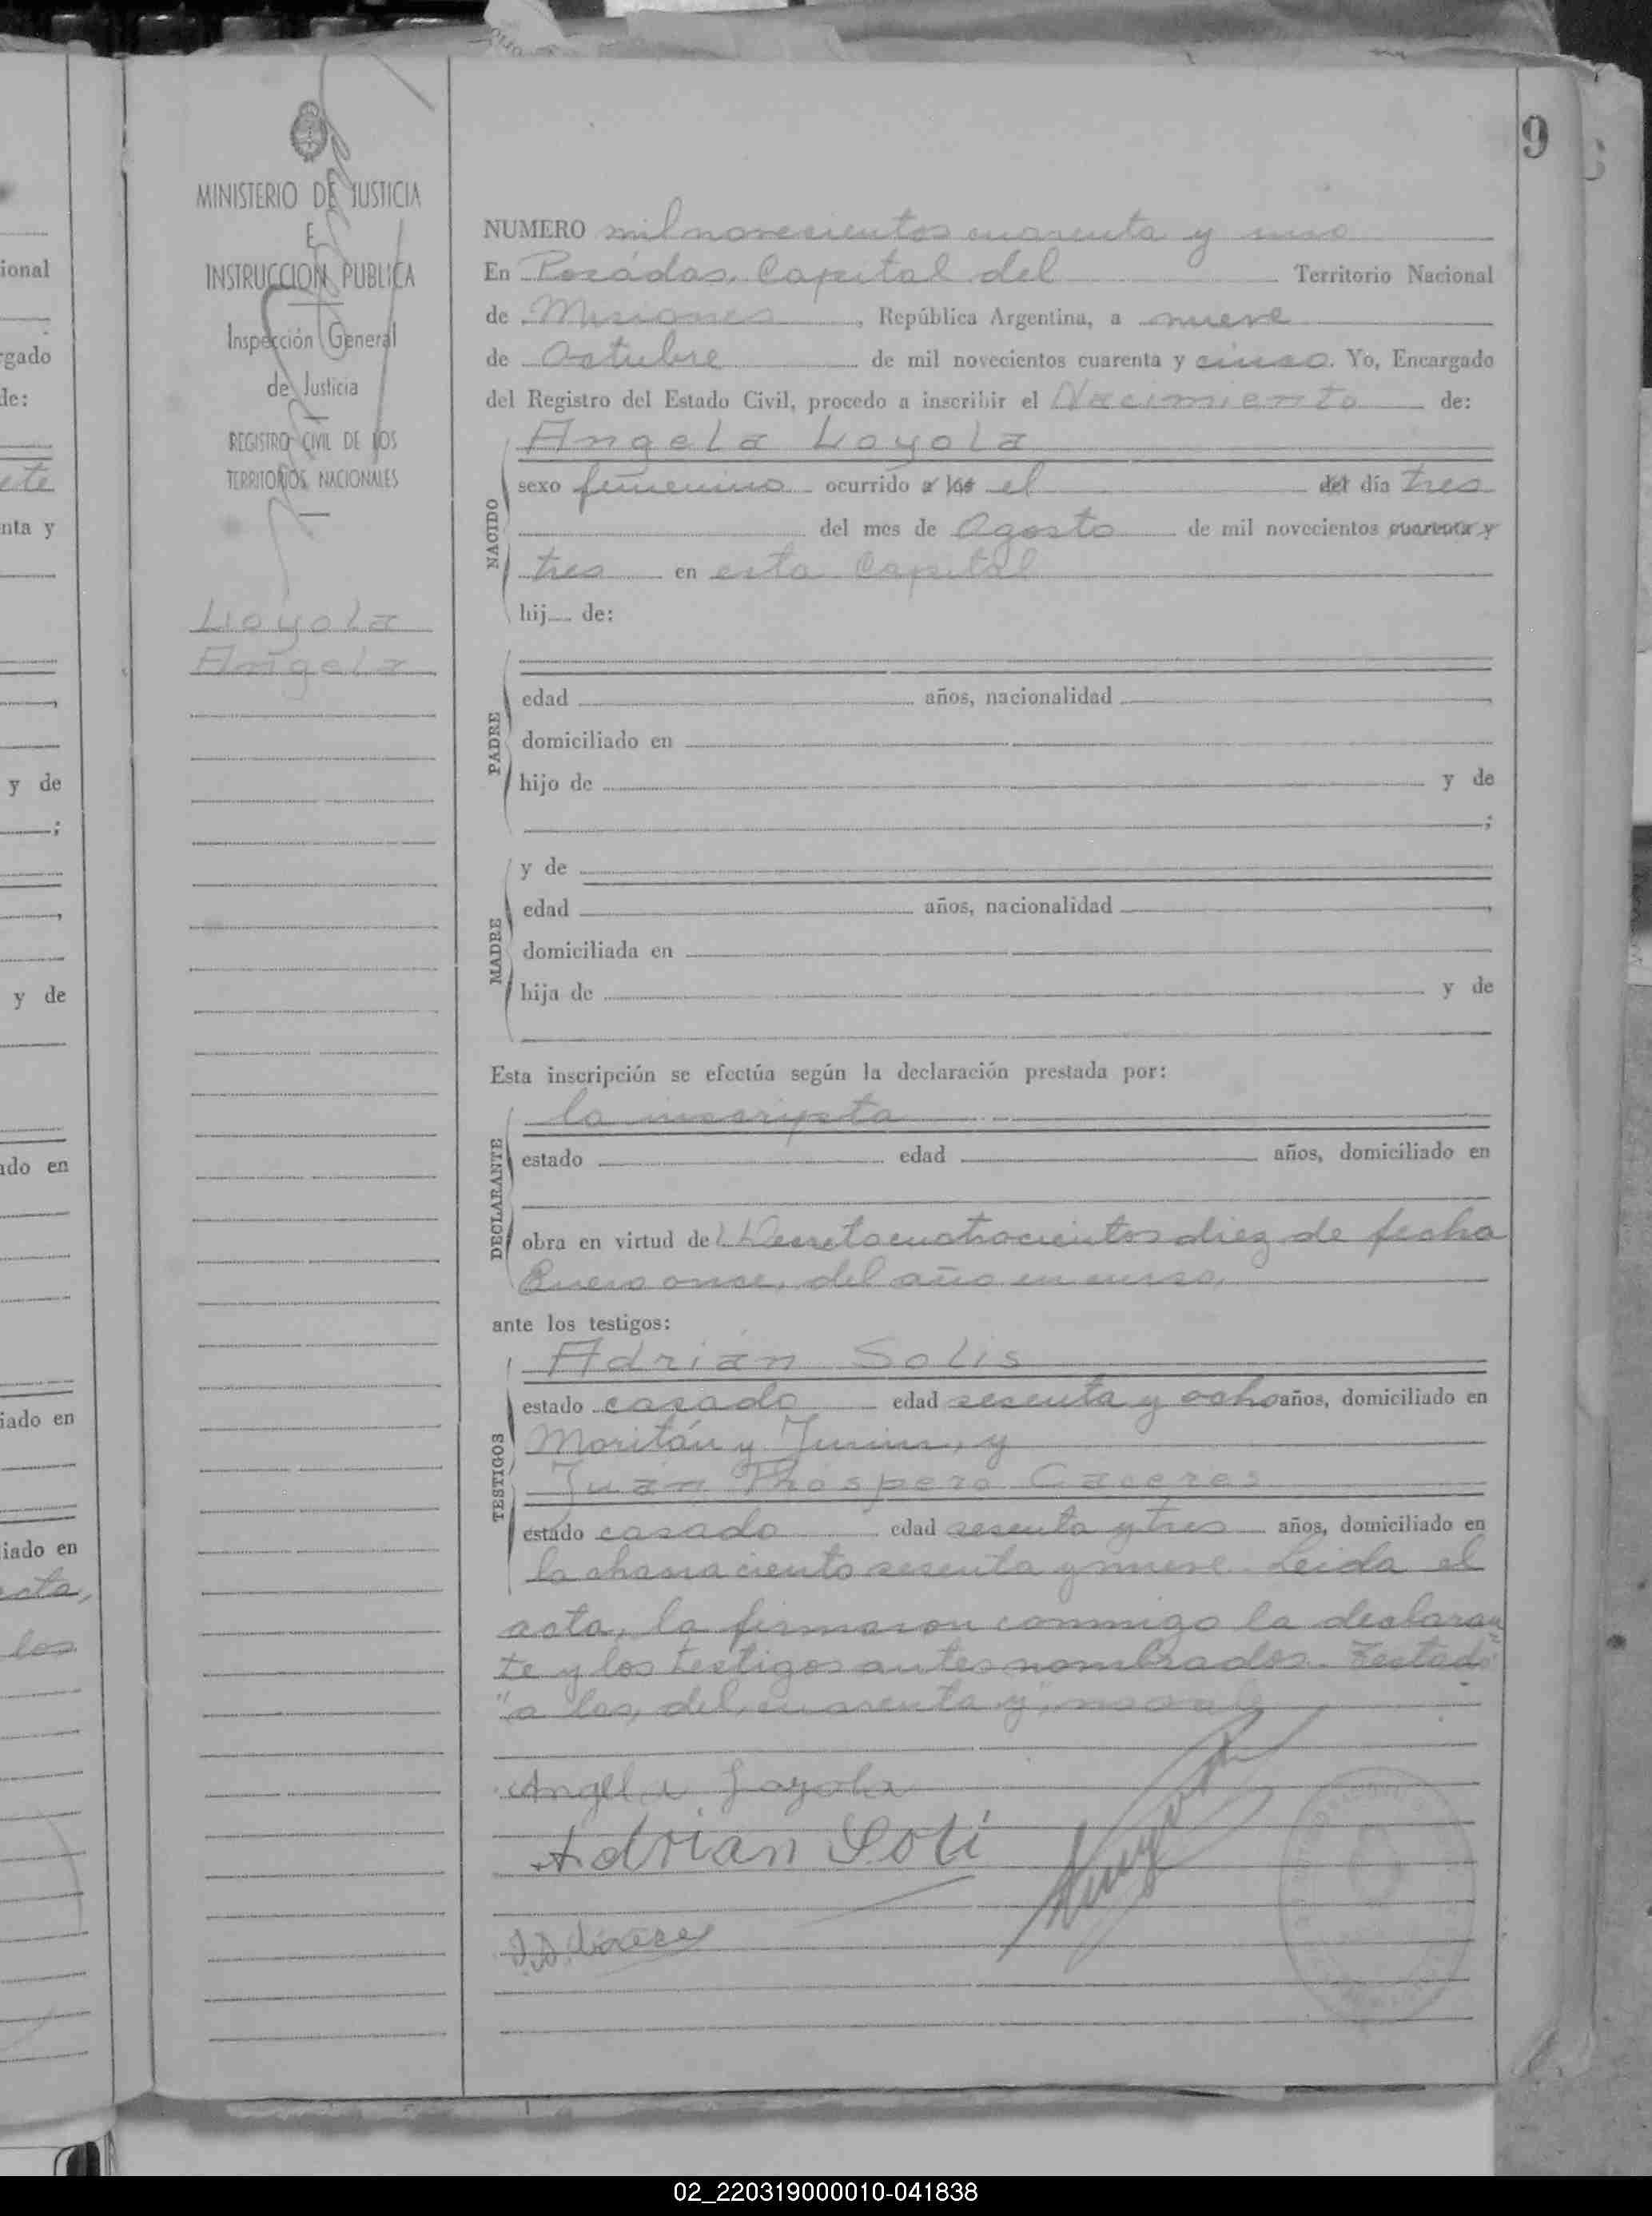 9
MINISTERIO DE JUSTICIA
E
INSTRUCCION PUBLICA
Inspección General
de Justicia
REGISTRO CIVIL DE LOS
TERRITORIOS NACIONALES
Loyola
Angela
NUMERO mil novecientos cuarenta y uno
En Posadas, Capital del Territorio Nacional
de Misiones, República Argentina, a nueve
de Octubre de mil novecientos cuarenta y cinco. Yo, Encargado
del Registro del Estado Civil, procedo a inscribir el Nacimiento de:
Angela Loyola
NACIDO
sexo femenino ocurrido a las el del día tres
del mes de Agosto de mil novecientos cuarenta y
tres en esta Capital
hij de:
PADRE
edad años, nacionalidad
domiciliado en
hijo de y de
;
MADRE
y de
edad años, nacionalidad
domiciliada en
hija de y de
Esta inscripción se efectúa según la declaración prestada por:
DECLARANTE
la inscripta
estado edad años, domiciliado en
obra en virtud del Decreto cuatrocientos diez de fecha
Enero once, del año en curso,
ante los testigos:
TESTIGOS
Adrián Solis
estado casado edad sesenta y ocho años, domiciliado en
Moritán y Junin, y
Juan Prospero Caceres
estado casado edad sesenta y tres años, domiciliado en
la chacra ciento sesenta y nueve. Leida el
acta, la firmaron conmigo la declaran
te y los testigos antes nombrados. Testado
"a las, del, cuarenta y", no vale
Angela Loyola
Adrian Soli
02_220319000010-041838
ional
gado
de:
nta y
y de
;
y de
ado en
iado en
iado en
los